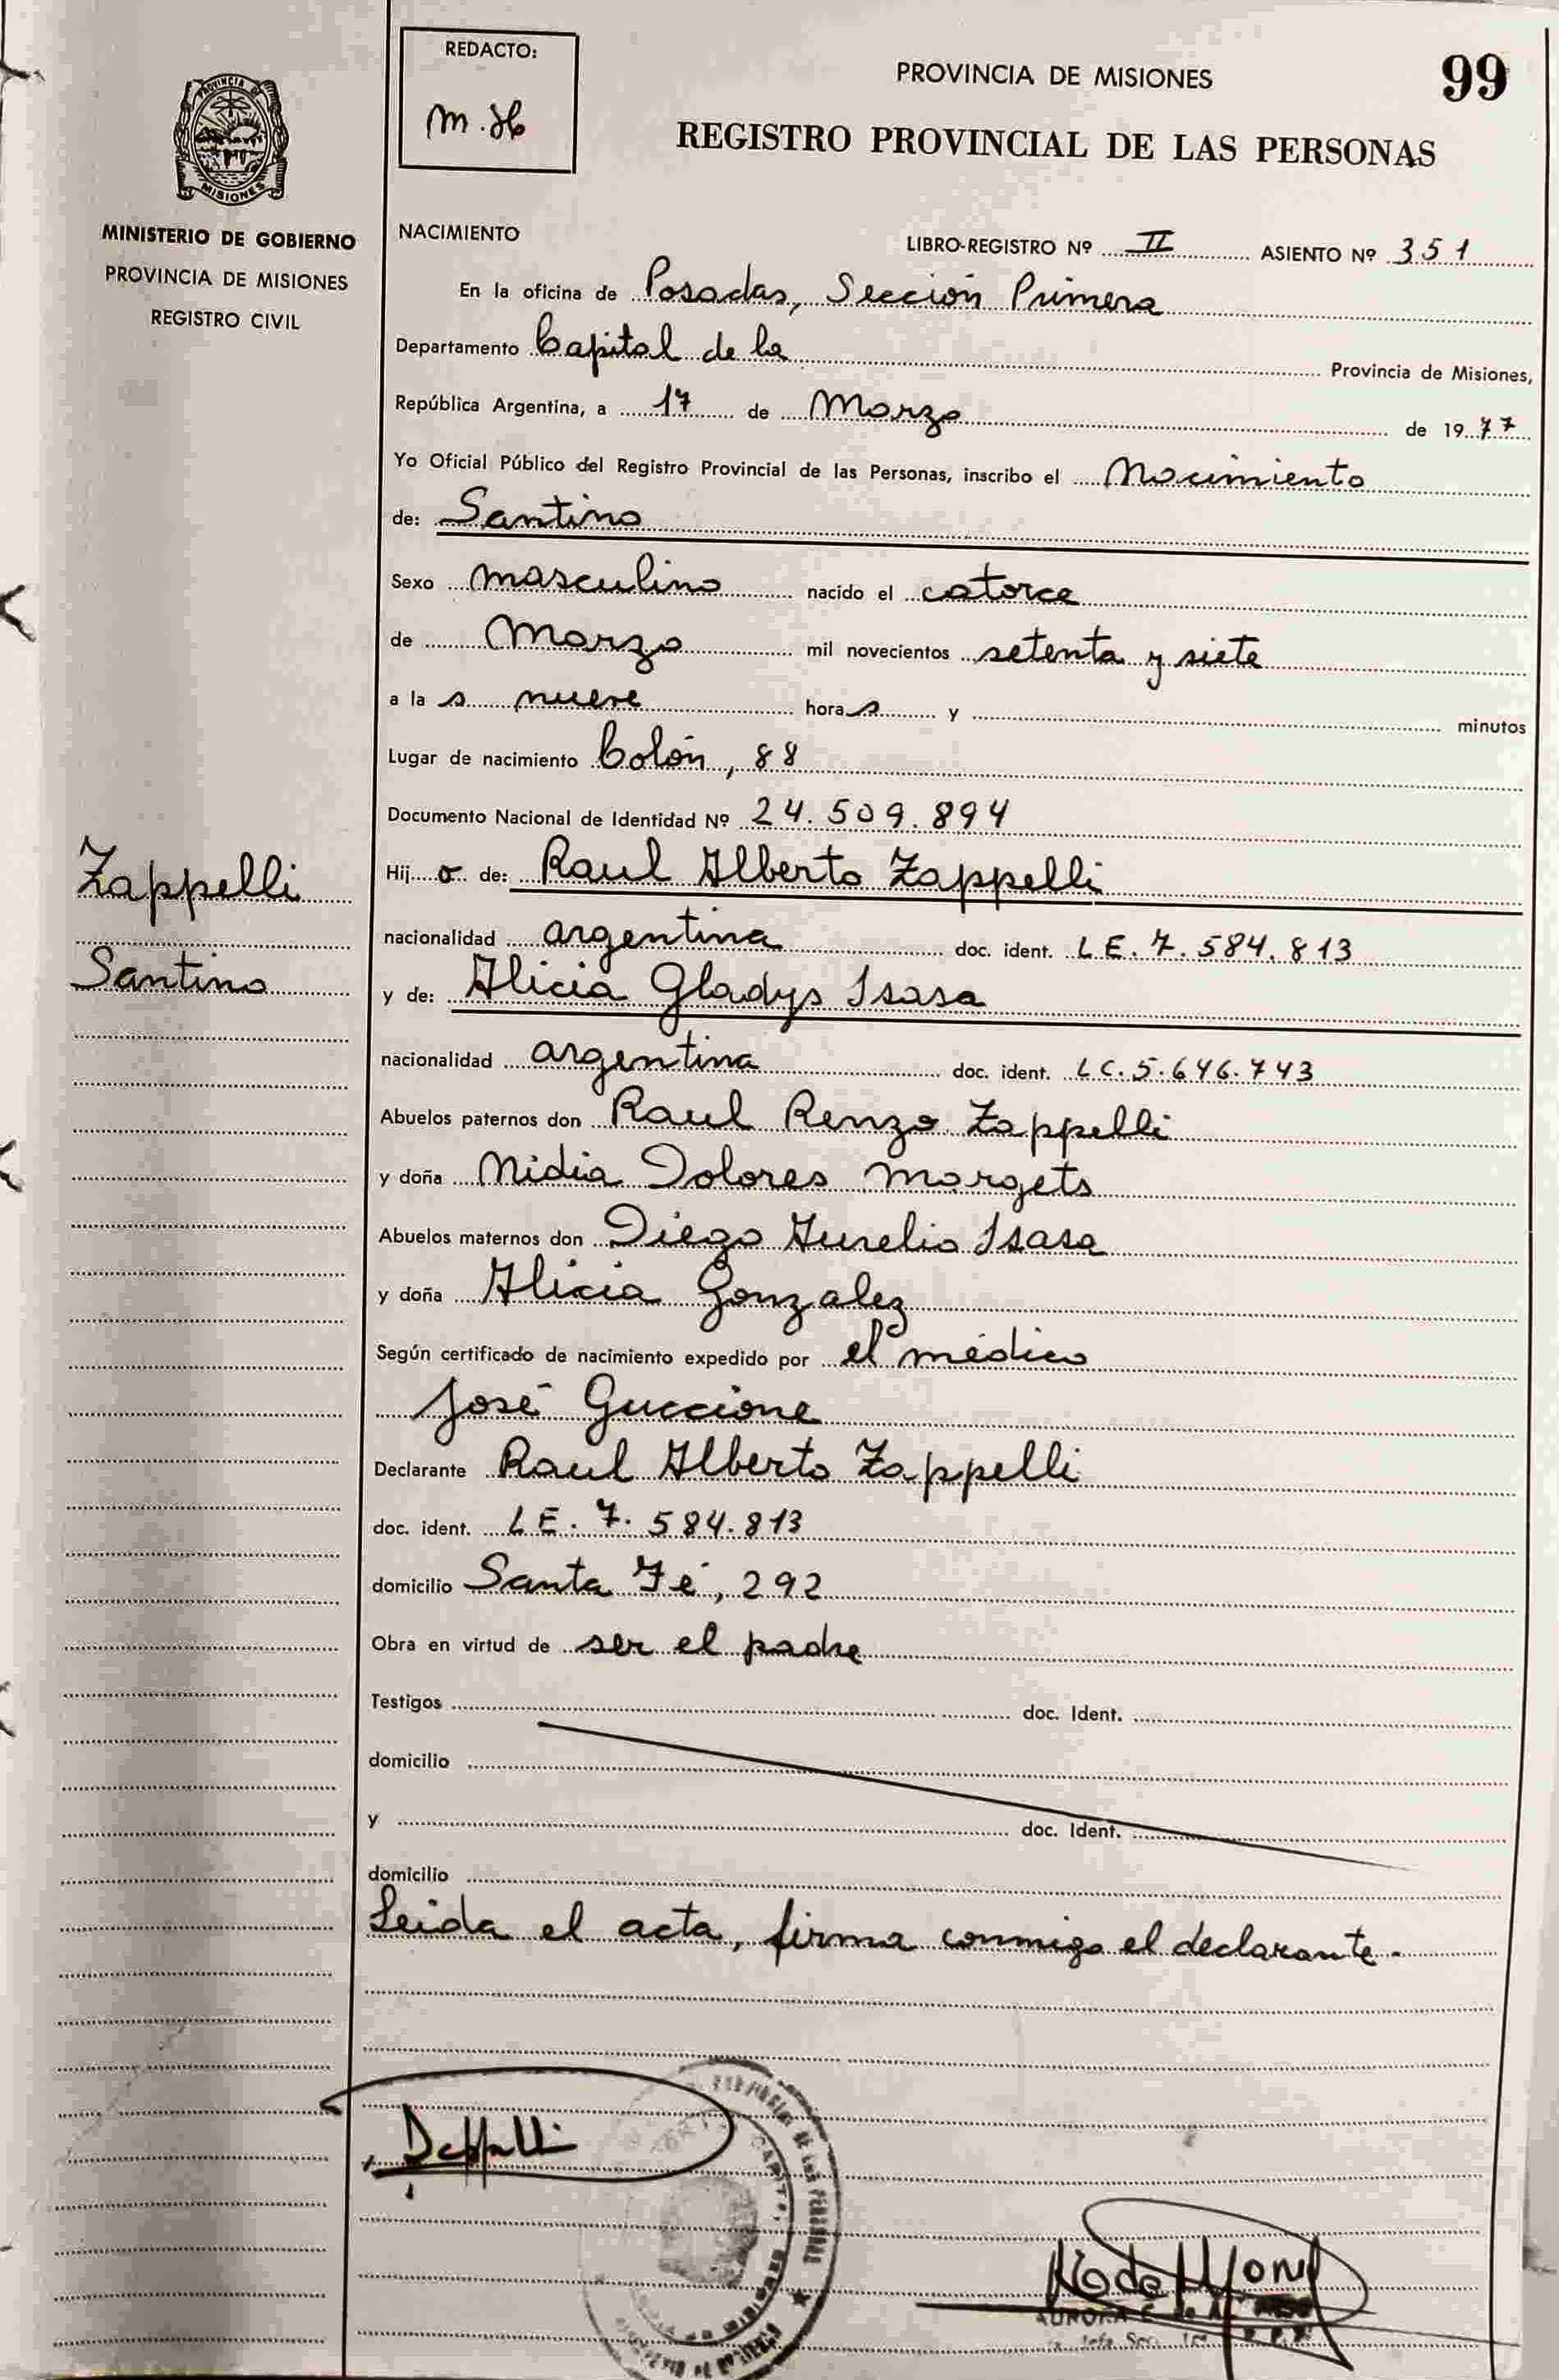 REDACTO:
PROVINCIA DE MISIONES
99
REGISTRO PROVINCIAL DE LAS PERSONAS
PROVINCIA DE
MISIONES
MINISTERIO DE GOBIERNO
PROVINCIA DE MISIONES
REGISTRO CIVIL
NACIMIENTO
LIBRO-REGISTRO Nº II ASIENTO Nº 351
En la oficina de Posadas, Sección Primera
Departamento Capital de la Provincia de Misiones,
República Argentina, a 17 de Marzo de 1977
Yo Oficial Público del Registro Provincial de las Personas, inscribo el Nacimiento
de: Santino
Sexo masculino nacido el catorce
de Marzo mil novecientos setenta y siete
a la s nueve hora s y minutos
Lugar de nacimiento Colón, 88
Documento Nacional de Identidad Nº 24.509.894
Hij o de: Raul Alberto Zappelli
nacionalidad argentina doc. ident. L E. 7. 584. 813
y de: Alicia Gladys Isasa
nacionalidad argentina doc. ident. L C. 5. 646. 743
Abuelos paternos don Raul Renzo Zappelli
y doña Nidia Dolores Margets
Abuelos maternos don Diego Aurelio Isasa
y doña Alicia Gonzalez
Según certificado de nacimiento expedido por el médico
José Guccione
Declarante Raul Alberto Zappelli
doc. ident. L E. 7. 584. 813
domicilio Santa Fé, 292
Obra en virtud de ser el padre
Testigos doc. Ident.
domicilio
y doc. Ident.
domicilio
Leida el acta, firma conmigo el declarante.
Zappelli
Santino
DE LAS PERSONAS